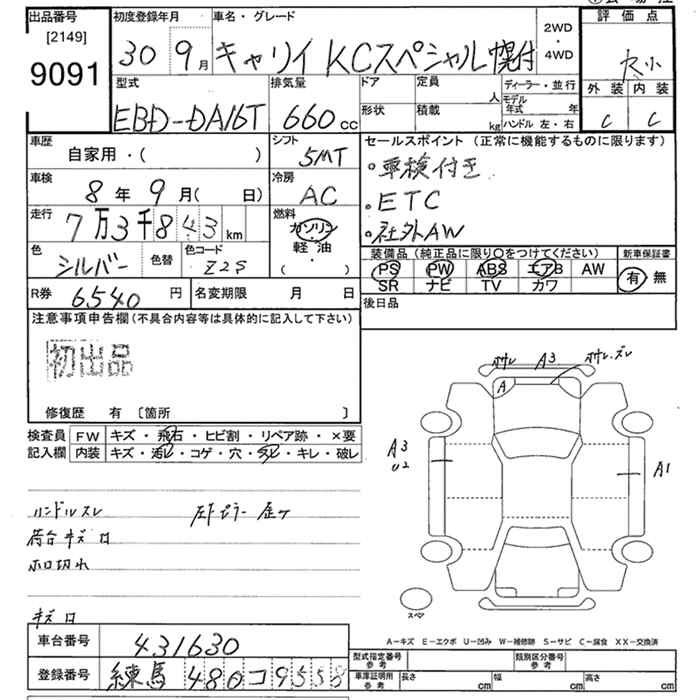 出品番号
[2149]
9091
初度登録年月 30年 9月
車名・グレード キャリイ KCスペシャル 幌付
2WD
・
4WD
評価点
外装 内装
C C
型式 EBD-DA16T
排気量 660 cc
ドア 定員 人
形状 積載 kg
ディーラー・並行
モデル年式 年
ハンドル 左・右
車歴 自家用・( )
シフト 5MT
車検 8年 9月( 日)
冷房 AC
走行 7万3千843 km
燃料 ガソリン
軽油
( ・ )
色 シルバー 色替
色コード Z2S
R券 6540 円 名変期限 月 日
セールスポイント(正常に機能するものに限ります)
・車検付き
・ETC
・社外AW
装備品(純正品に限り○をつけてください) 新車保証書
PS PW ABS エアB AW 有・無
SR ナビ TV カワ
後日品
注意事項申告欄(不具合内容等は具体的に記入して下さい)
初出品
修復歴 有 〔箇所 〕
検査員 FW キズ・飛石・ヒビ割・リペア跡・×要
記入欄 内装 キズ・汚レ・コゲ・穴・スレ・キレ・破レ
ハンドルスレ
荷台キズ
ホロ切れ
キズ
A3
A
A3
U2
A1
スペア
A－キズ E－エクボ U－凹み W－補修跡 S－サビ C－腐食 XX－交換済
車台番号 431630
登録番号 練馬 480 コ 9558
型式指定番号 参考
類別区分番号 参考
車庫証明用 参考 長さ cm 幅 cm 高さ cm